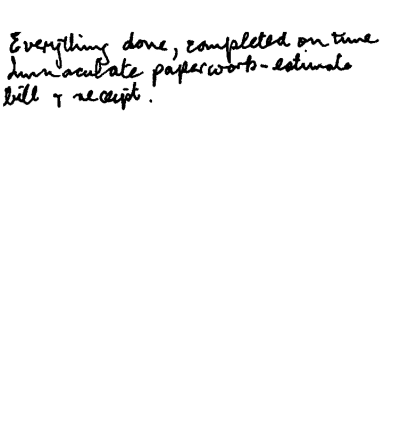 Everything done, completed on time
Immaculate paperwork - estimate
bill & receipt.